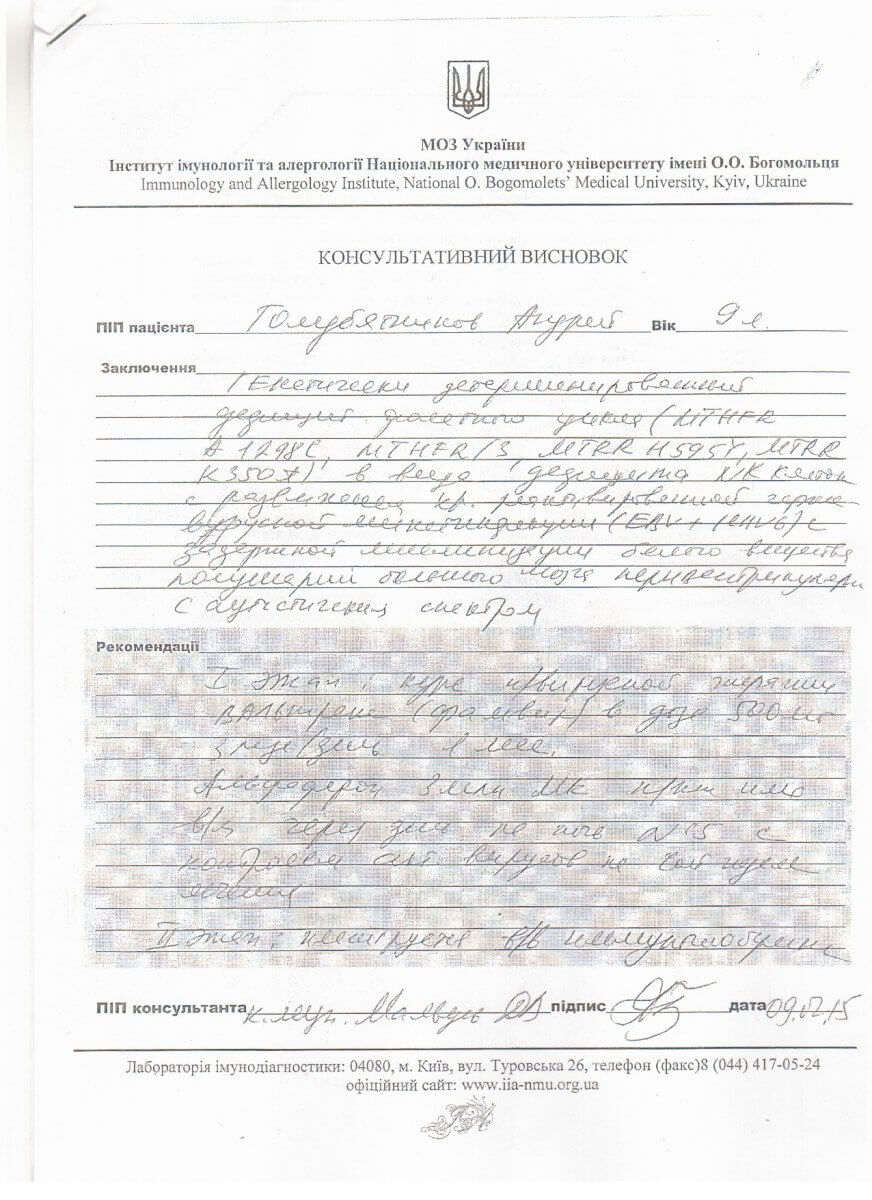 МОЗ України
Інститут імунології та алергології Національного медичного університету імені О.О. Богомольця
Immunology and Allergology Institute, National O. Bogomolets’ Medical University, Kyiv, Ukraine
КОНСУЛЬТАТИВНИЙ ВИСНОВОК
ПІП пацієнта Голубятников Андрей Вік 9 л.
Заключення
Генетически детерминированный
дефицит фолатного цикла (MTHFR
A1298C, MTHFR/3, MTRR H595Y, MTRR
K350A) в виде дефицита клеток
с развитием хр. реактивированной герпес-
вирусной микстинфекции (EBV + HHV6) с
задержкой миелинизации белого вещества
полушарий большого мозга перивентрикулярно
с аутистическим спектром
Рекомендації
I этап: курс терапии
Вальтрекс (фамвир) в дозе 500 мг
3 раз/день 1 мес.
Альфаферон 3 млн МЕ
в/м через день на ночь N15 с
контролем акт. вирусов на
лечения
II этап: в/в иммуноглобулин
ПІП консультанта к.мед.н. Мальцев ДВ підпис дата 09.02.15
Лабораторія імунодіагностики: 04080, м. Київ, вул. Туровська 26, телефон (факс)8 (044) 417-05-24
офіційний сайт: www.iia-nmu.org.ua